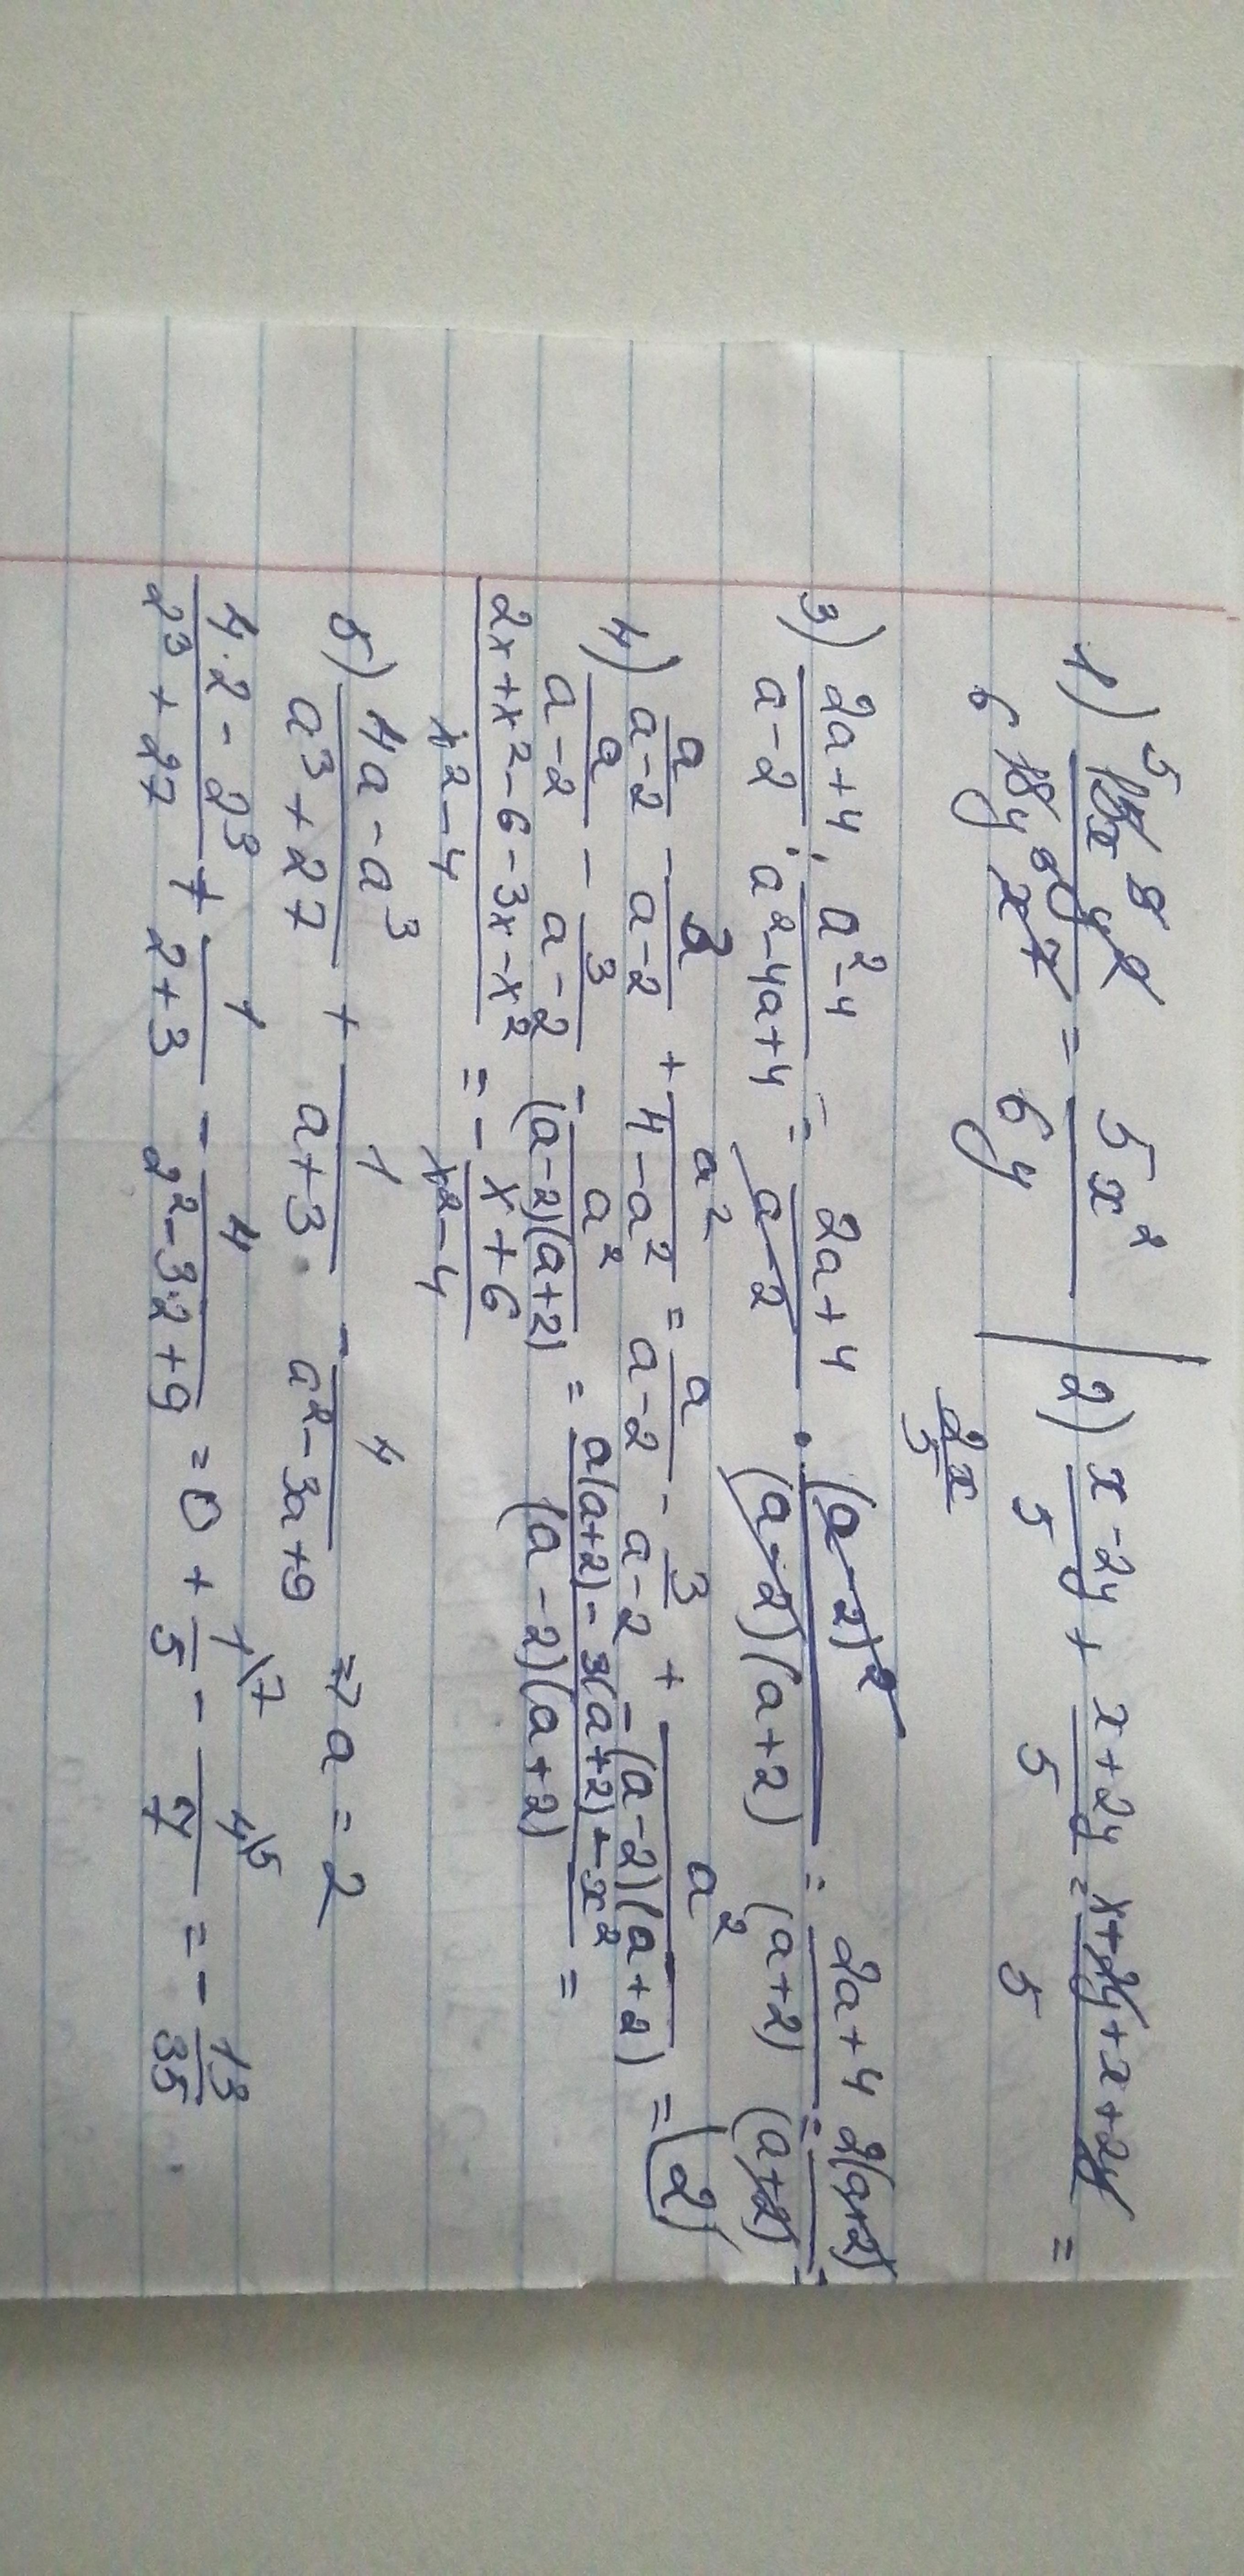 1) ⁵15x⁸y² / ₆18y⁶x⁷ = 5x² / 6y | 2) x-2y / 5 + x+2y / 5 = x+2y+x+2y / 5 =
2x / 5
3) 2a+4 / a-2 : a²-4 / a²-4a+4 = 2a+4 / a-2 · (a-2)² / (a-2)(a+2) = 2a+4 / (a+2) = 2(a+2) / (a+2) =
4) a / a-2 - 3 / a-2 + a² / 4-a² = a / a-2 - 3 / a-2 + a² / -(a-2)(a+2) = (2)
a / a-2 - 3 / a-2 - a² / (a-2)(a+2) = a(a+2)-3(a+2)+-x² / (a-2)(a+2) =
2x+x²-6-3x-x² / x²-4 = - x+6 / x²-4
5) 4a-a³ / a³+27 + 1 / a+3 - 4 / a²-3a+9 => a=2
4·2-2³ / 2³+27 + 1 / 2+3 - 4 / 2²-3·2+9 = 0 + 1\7 / 5 - 4\5 / 7 = - 13 / 35